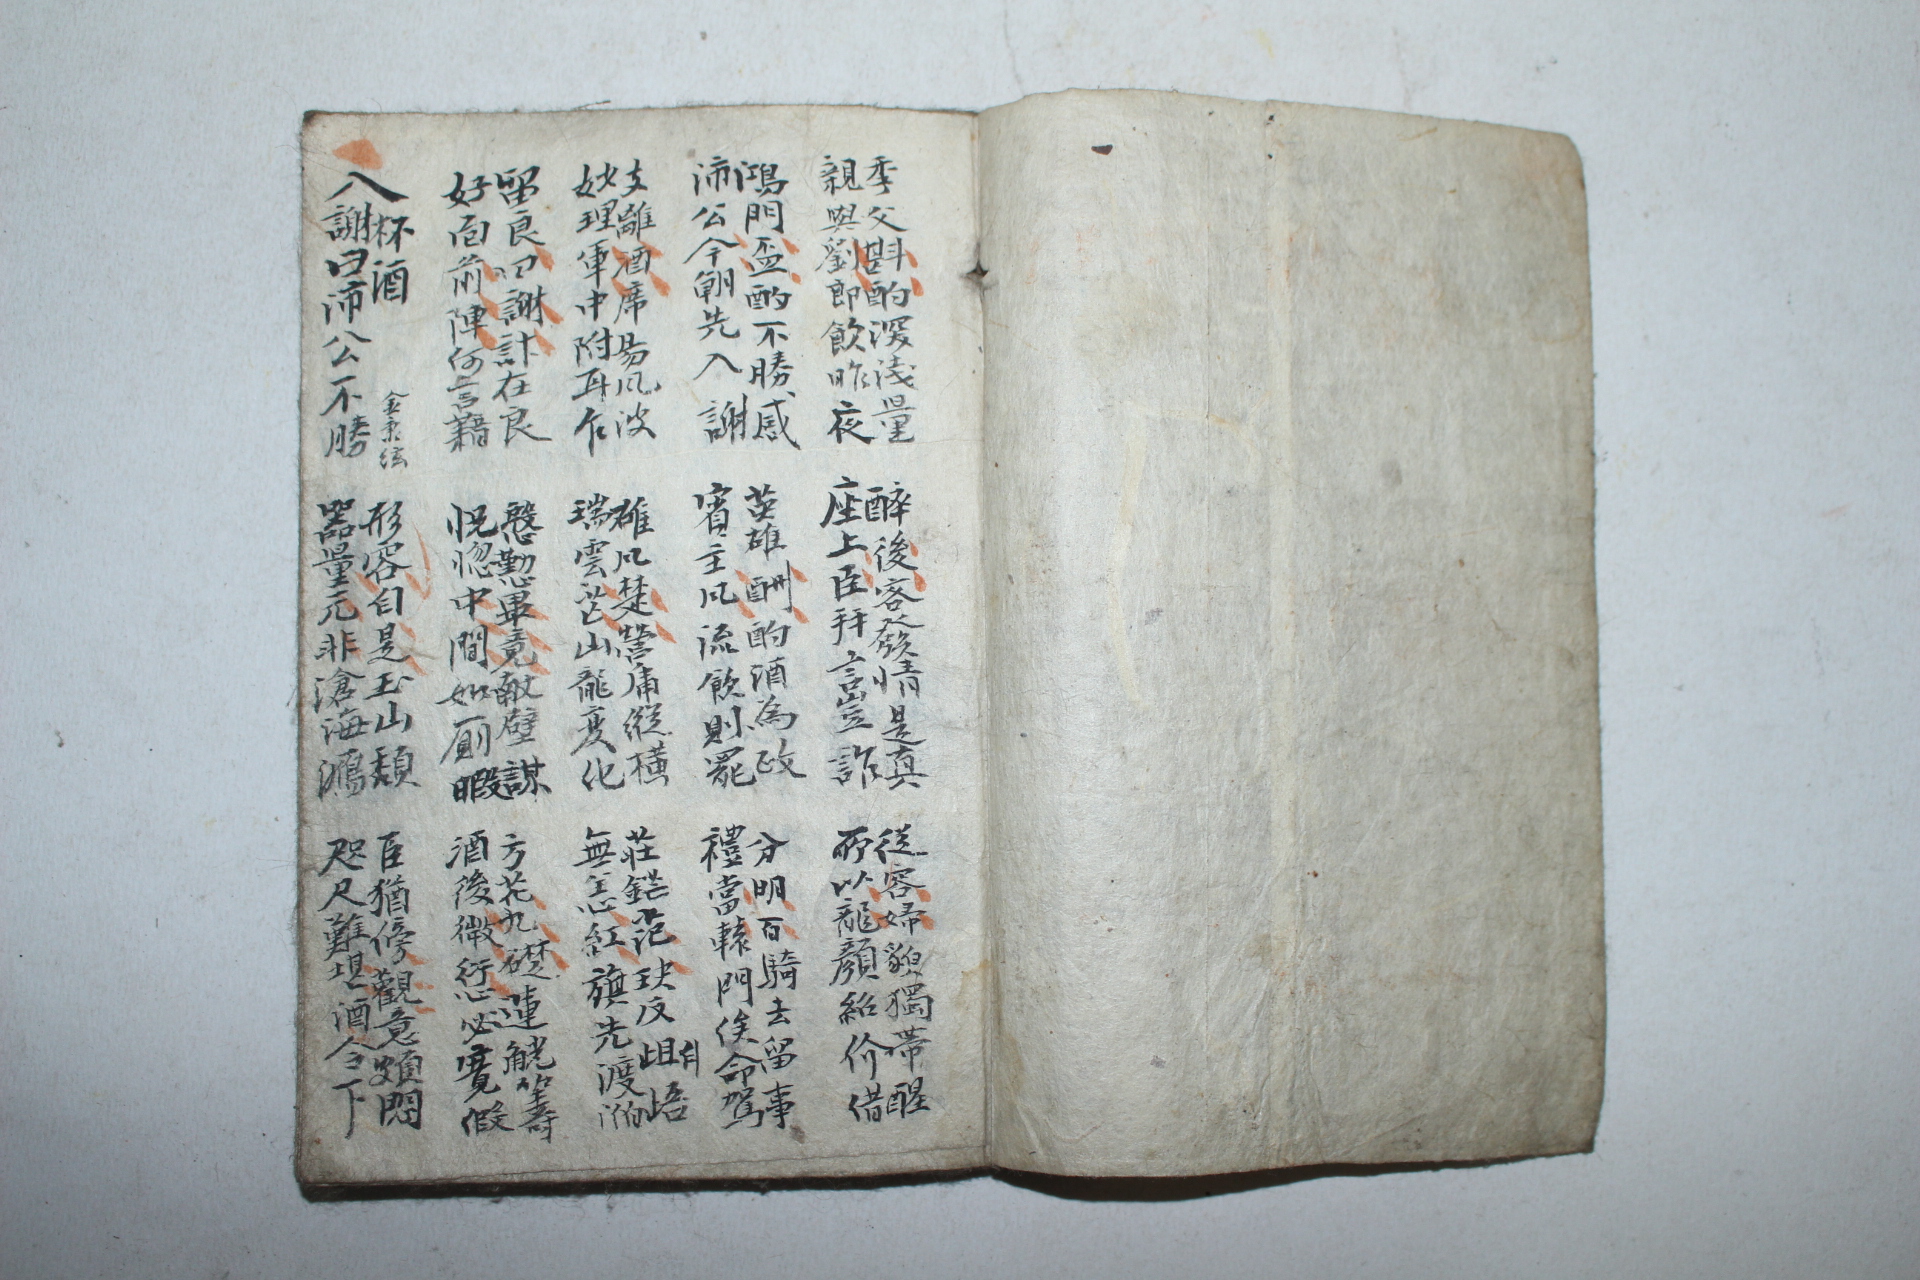 季父斟酌深淺量
親與劉郎飮昨夜
醉後客發情是真
座上臣拜言豈詐
從容歸貌獨帶醒
所以龍顏紹介借
鴻門盃酌不勝感
沛公今朝先入謝
英雄酬酌酒為政
賓主風流飮則罷
分明百騎去留事
禮當轅門俟命駕
支離酒席易風波
妙理軍中附耳乍
雄風楚營庸縱橫
瑞雲芒山龍變化
莊鋩范玦反岨峿
無恙紅旗先渡
留良叩謝計在良
好面前陣何言藉
慇懃畢竟敵壁謀
怳惚中間如廁暇
方花九礎蓮觥籌
酒後微行必寬假
入謝曰沛公不勝
杯酒
金秉
形容自是玉山頹
器量元非滄海瀉
臣猶傍觀意頗悶
咫尺難堪酒令下